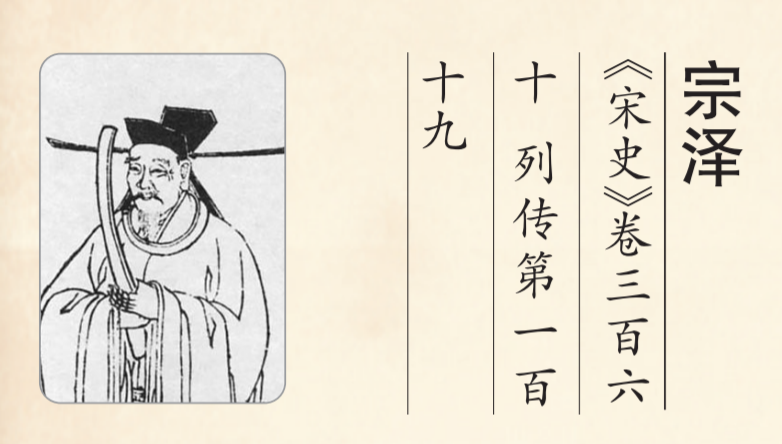 宗泽
《宋史》卷三百六
十 列传第一百
十九